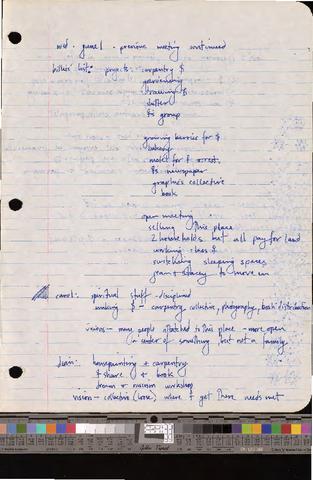 wed. game 1. previous meeting continued
billie's list: projects: carpentry $
gardening
drawing $
shelter
$'s group
growing berries for $
market for $
$'s newspaper
graphics collective
book
open meeting
selling this place
2 households but all pay for land
working class $
switching sleeping spaces
jean & stacey to move in
carol: spiritual stuff - disciplined
making $ - carpentry, collective, photography, book distribution
vision - many people attached to this place - more open
(a center of something, but not a family
jean: housepainting + carpentry
$ share + book
dream & vision workshop
vision - collective (loose) where I get these needs met